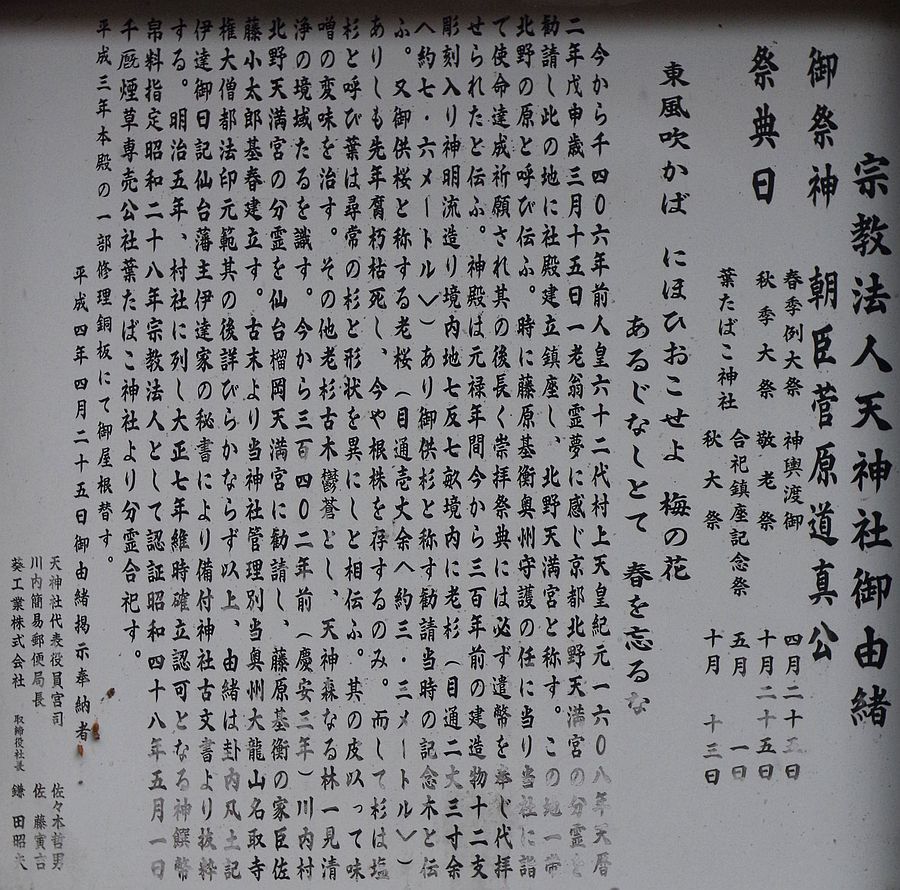 宗教法人天神社御由緒
御祭神　朝臣菅原道真公
祭典日
春季例大祭　神輿渡御　四月二十五日
秋季大祭　敬老祭　十月二十五日
合祀鎮座記念祭　五月一日
葉たばこ神社　秋大祭　十月十三日
東風吹かば　にほひおこせよ　梅の花
あるじなしとて　春を忘るな
今から千四〇六年前人皇六十二代村上天皇紀元一六〇八年天暦
二年戊申歳三月十五日一老翁霊夢に感じ京都北野天満宮の分霊を
勧請し此の地に社殿建立鎮座し、北野天満宮と称す。この地一帯
北野の原と呼び伝ふ。時に藤原基衡奥州守護の任に当り当社に詣
て使命達成祈願され其の後長く崇拝祭典には必ず遣幣を奉じ代拝
せられたと伝ふ。神殿は元禄年間今から三百年前の建造物十二支
彫刻入り神明流造り境内地七反七畝境内に老杉（目通二丈三寸余
へ約七・六メートル＞）あり御供杉と称す勧請当時の記念木と伝
ふ。又御供桜と称する老桜（目通壱丈余へ約三・三メートル＞）
ありしも先年腐朽枯死し、今や根株を存するのみ。而して杉は塩
杉と呼び葉は尋常の杉と形状を異にしと相伝ふ。其の皮以って味
噌の変味を治す。その他老杉古木鬱蒼とし、天神森なる林一見清
浄の境域たるを識す。今から三百四〇二年前（慶安三年）川内村
北野天満宮の分霊を仙台榴岡天満宮に勧請し、藤原基衡の家臣佐
藤小太郎基春建立す。古末より当神社管理別当奥州大龍山名取寺
権大僧都法印元範其の後詳びらかならず以上、由緒は封内風土記
伊達御日記仙台藩主伊達家の秘書により備付神社古文書より抜粋
する。明治五年、村社に列し大正七年維時確立認可となる神饌幣
帛料指定昭和二十八年宗教法人として認証昭和四十八年五月一日
千厩煙草専売公社葉たばこ神社より分霊合祀す。
平成三年本殿の一部修理銅板にて御屋根替す。
平成四年四月二十五日御由緒掲示奉納者
天神社代表役員宮司　佐々木哲男
川内簡易郵便局長　佐藤寅吉
葵工業株式会社　取締役社長　鎌田昭